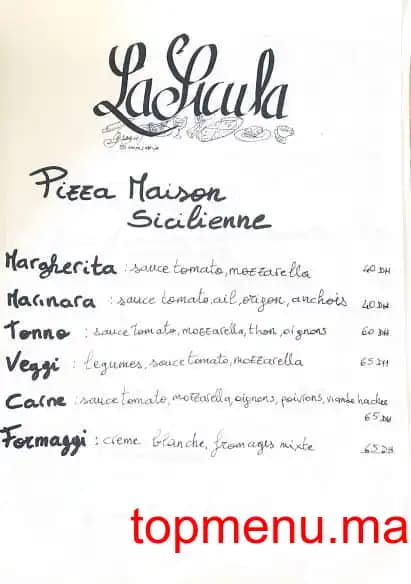 La Sicula
Pizza Maison
Sicilienne
Margherita : sauce tomato, mozzarella 40 DH
Marinara : sauce tomato, ail, origon, anchois 40 DH
Tonno : sauce tomato, mozzarella, thon, oignons 60 DH
Veggi : legumes, sauce tomato, mozzarella 65 DH
Carne : sauce tomato, mozzarella, oignons, poivrons, viande hachee
65 DH
Formaggi : creme blanche, fromages mixte 65 DH
topmenu.ma